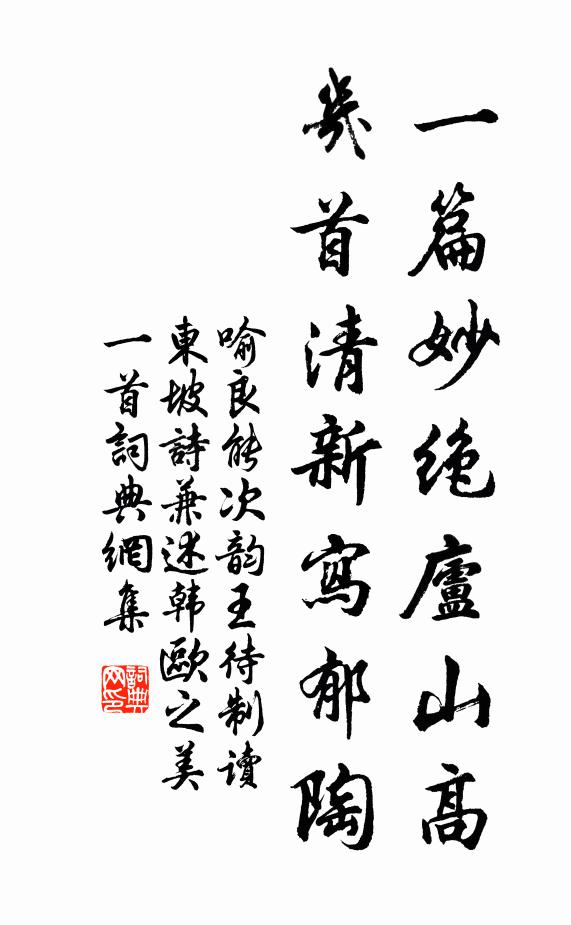 一篇妙絶廬山高
幾首清新寫郁陶
喻良能次韵王待制讀
東坡詩兼述韓歐之美
一首詞典網集
詞典
网印